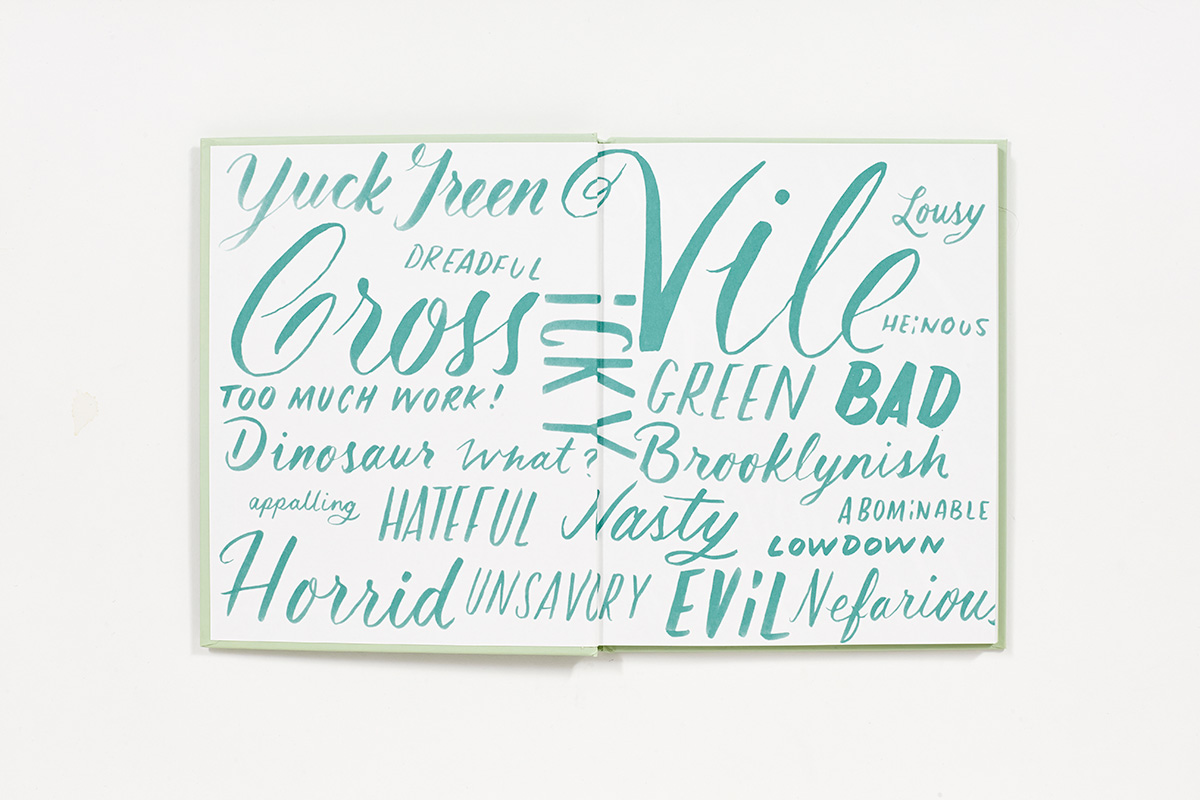 Yuck Green
Vile
Lousy
DREADFUL
Gross
iCKY
HEiNOUS
GREEN BAD
TOO MUCH WORK!
Dinosaur What?
Brooklynish
appalling
HATEFUL
Nasty
ABOMiNABLE
LOWDOWN
Horrid
UNSAVORY
EViL
Nefarious